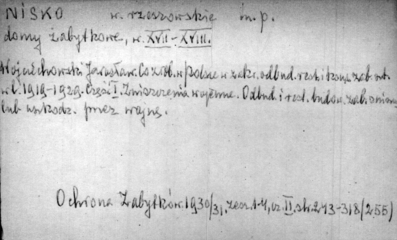 NISKO w. rzeszowskie m.p.
domy zabytkowe, w. XVII-XVIII.
Wojciechowski Jarosław. Co zrob. w Polsce w zakr. odbud. rest. i kons. zab. szt.
w l. 1919-1929. Część I. Zniszczenia wojenne. Odbud. i rest. budow. zab. zniszcz.
lub uszkodz. przez wojnę.
Ochrona Zabytków 1930/31, zesz. 1-4, cz. II, str. 273-318 /255)